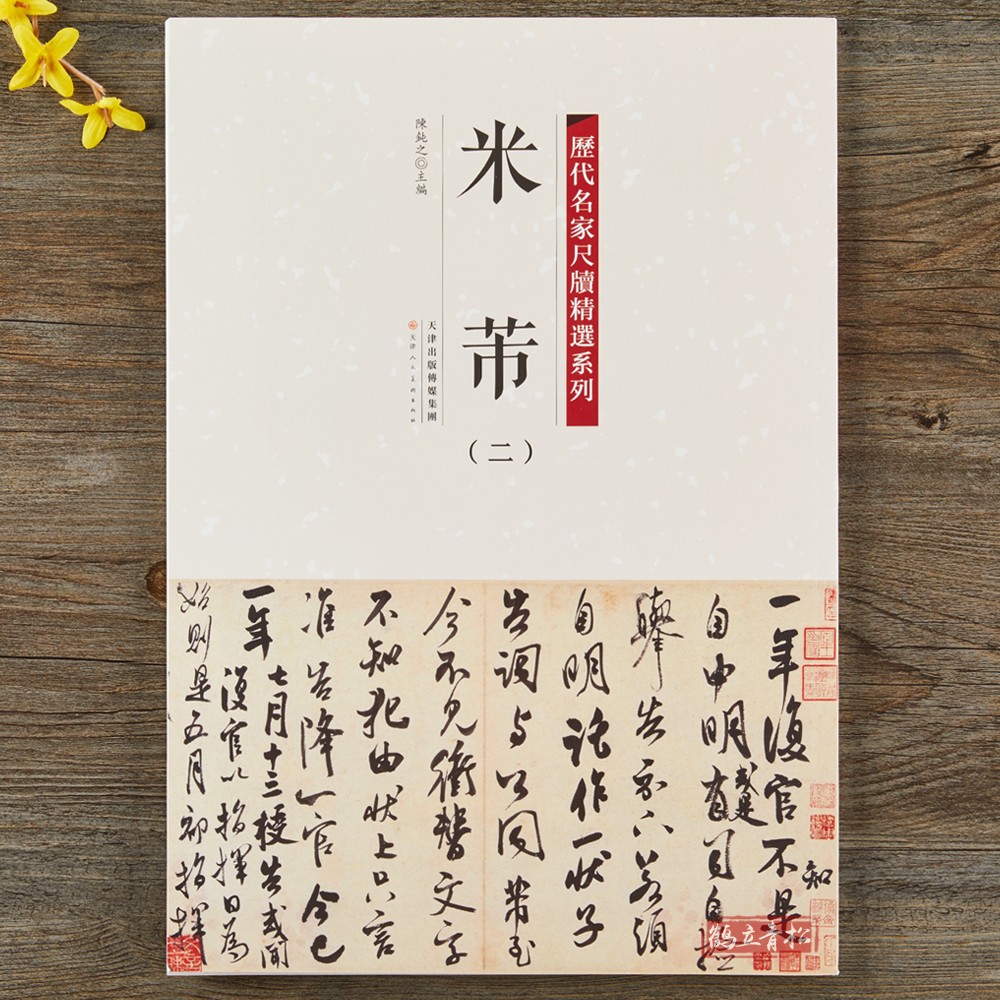 歷代名家尺牘精選系列
米芾
（二）
陳鈍之◎主編
天津出版傳媒集團
天津人民美術出版社
一年復官不是知
自申明或是有司自
舉告示八若須
自明詫作一狀子
告詞与公同芾至
今不見衝替文字
不知犯由狀上只言
准告降一官今已
一年
七月十三授告或聞
復官以指揮日為
始則是五月初指揮
鶴立青松